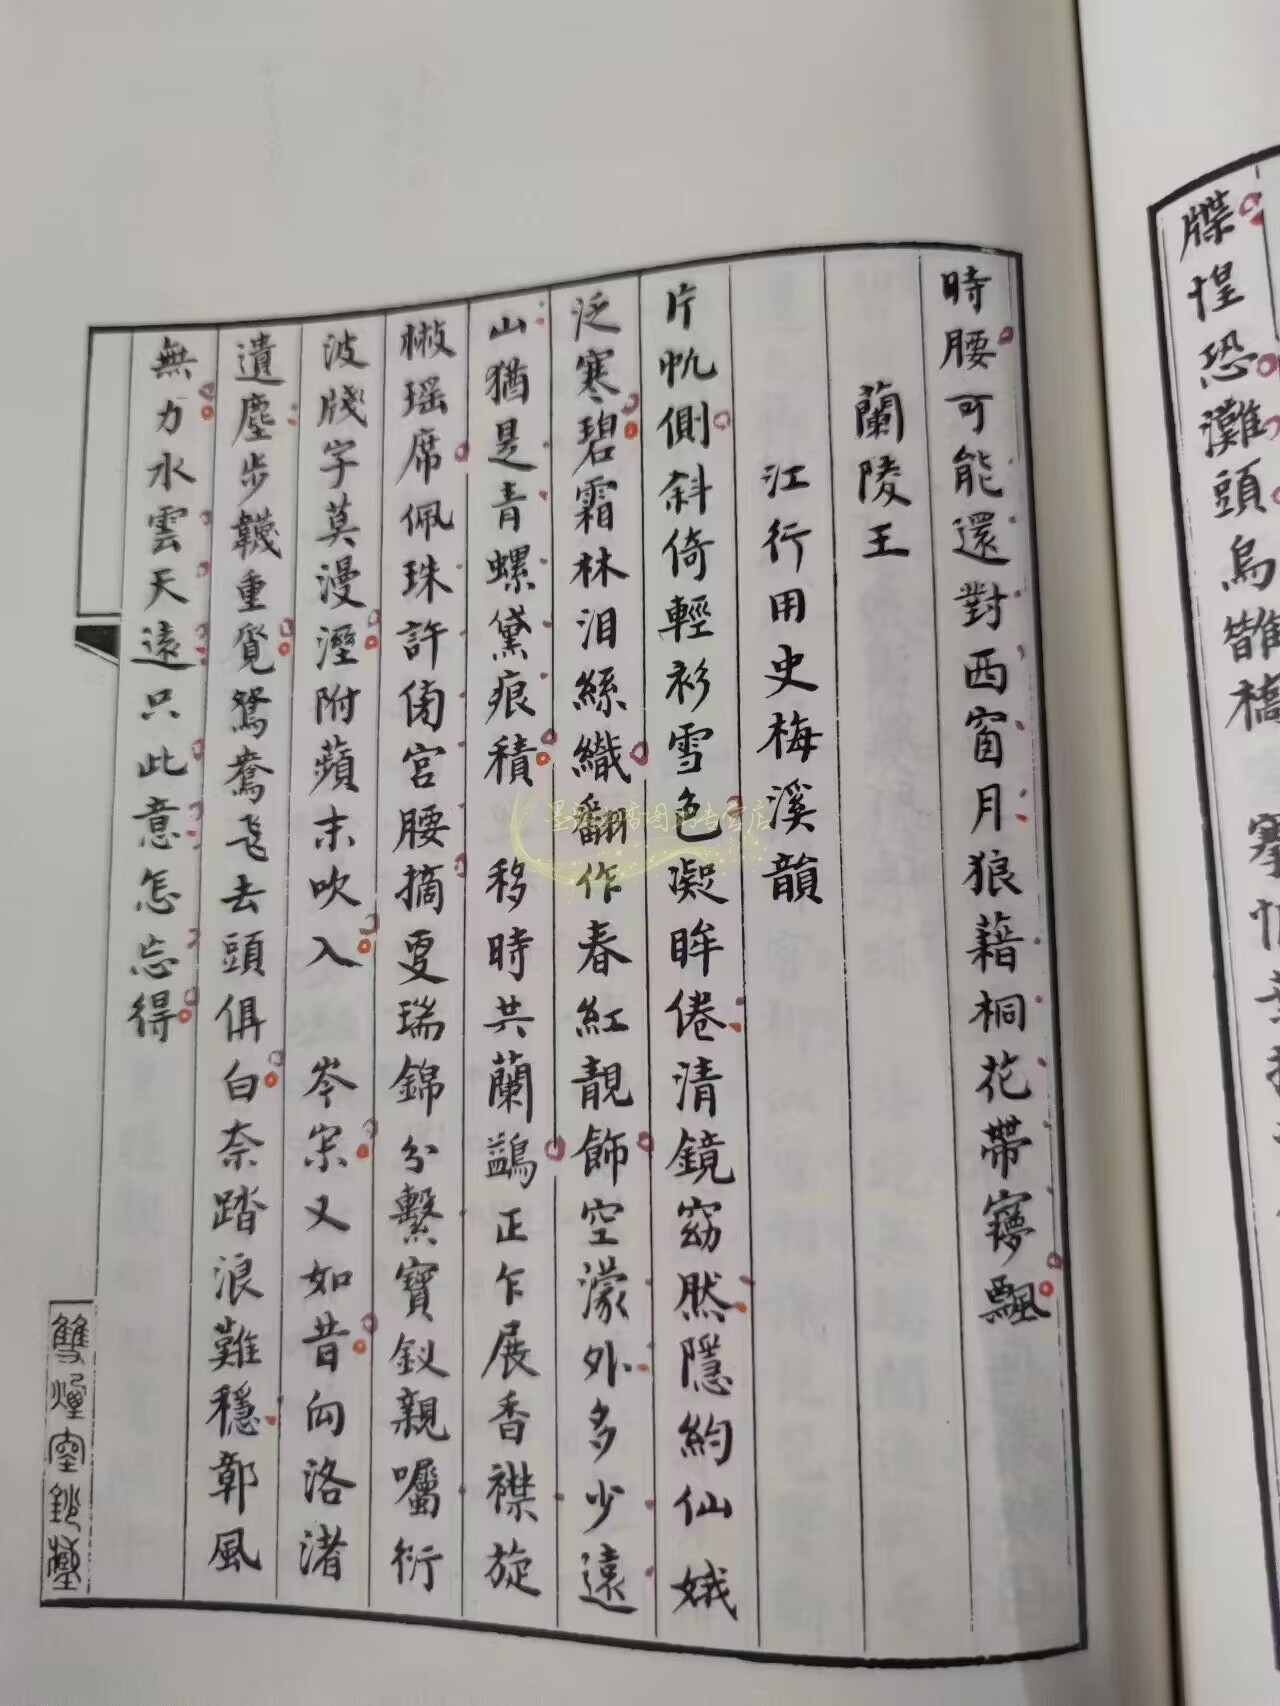 牒惶恐灘頭烏鵲橋
時腰可能還對西窗月狼藉桐花帶㝱飄
蘭陵王
江行用史梅溪韻
片帆側斜倚輕衫雪色凝眸倦清鏡窈然隱約仙娥
泛寒碧霜林泪絲織翻作春紅靚飾空濛外多少遠
山猶是青螺黛痕積 移時共蘭鷁正乍展香襟旋
楸瑶席佩珠許傍宫腰摘更瑞錦分繫寶釵親囑衍
波牋字莫漫溼附蘋末吹入 岑寂又如昔向洛渚
遺塵步韈重覓鴛鴦飞去頭俱白奈踏浪難穩鄣風
無力水雲天遠只此意怎忘得